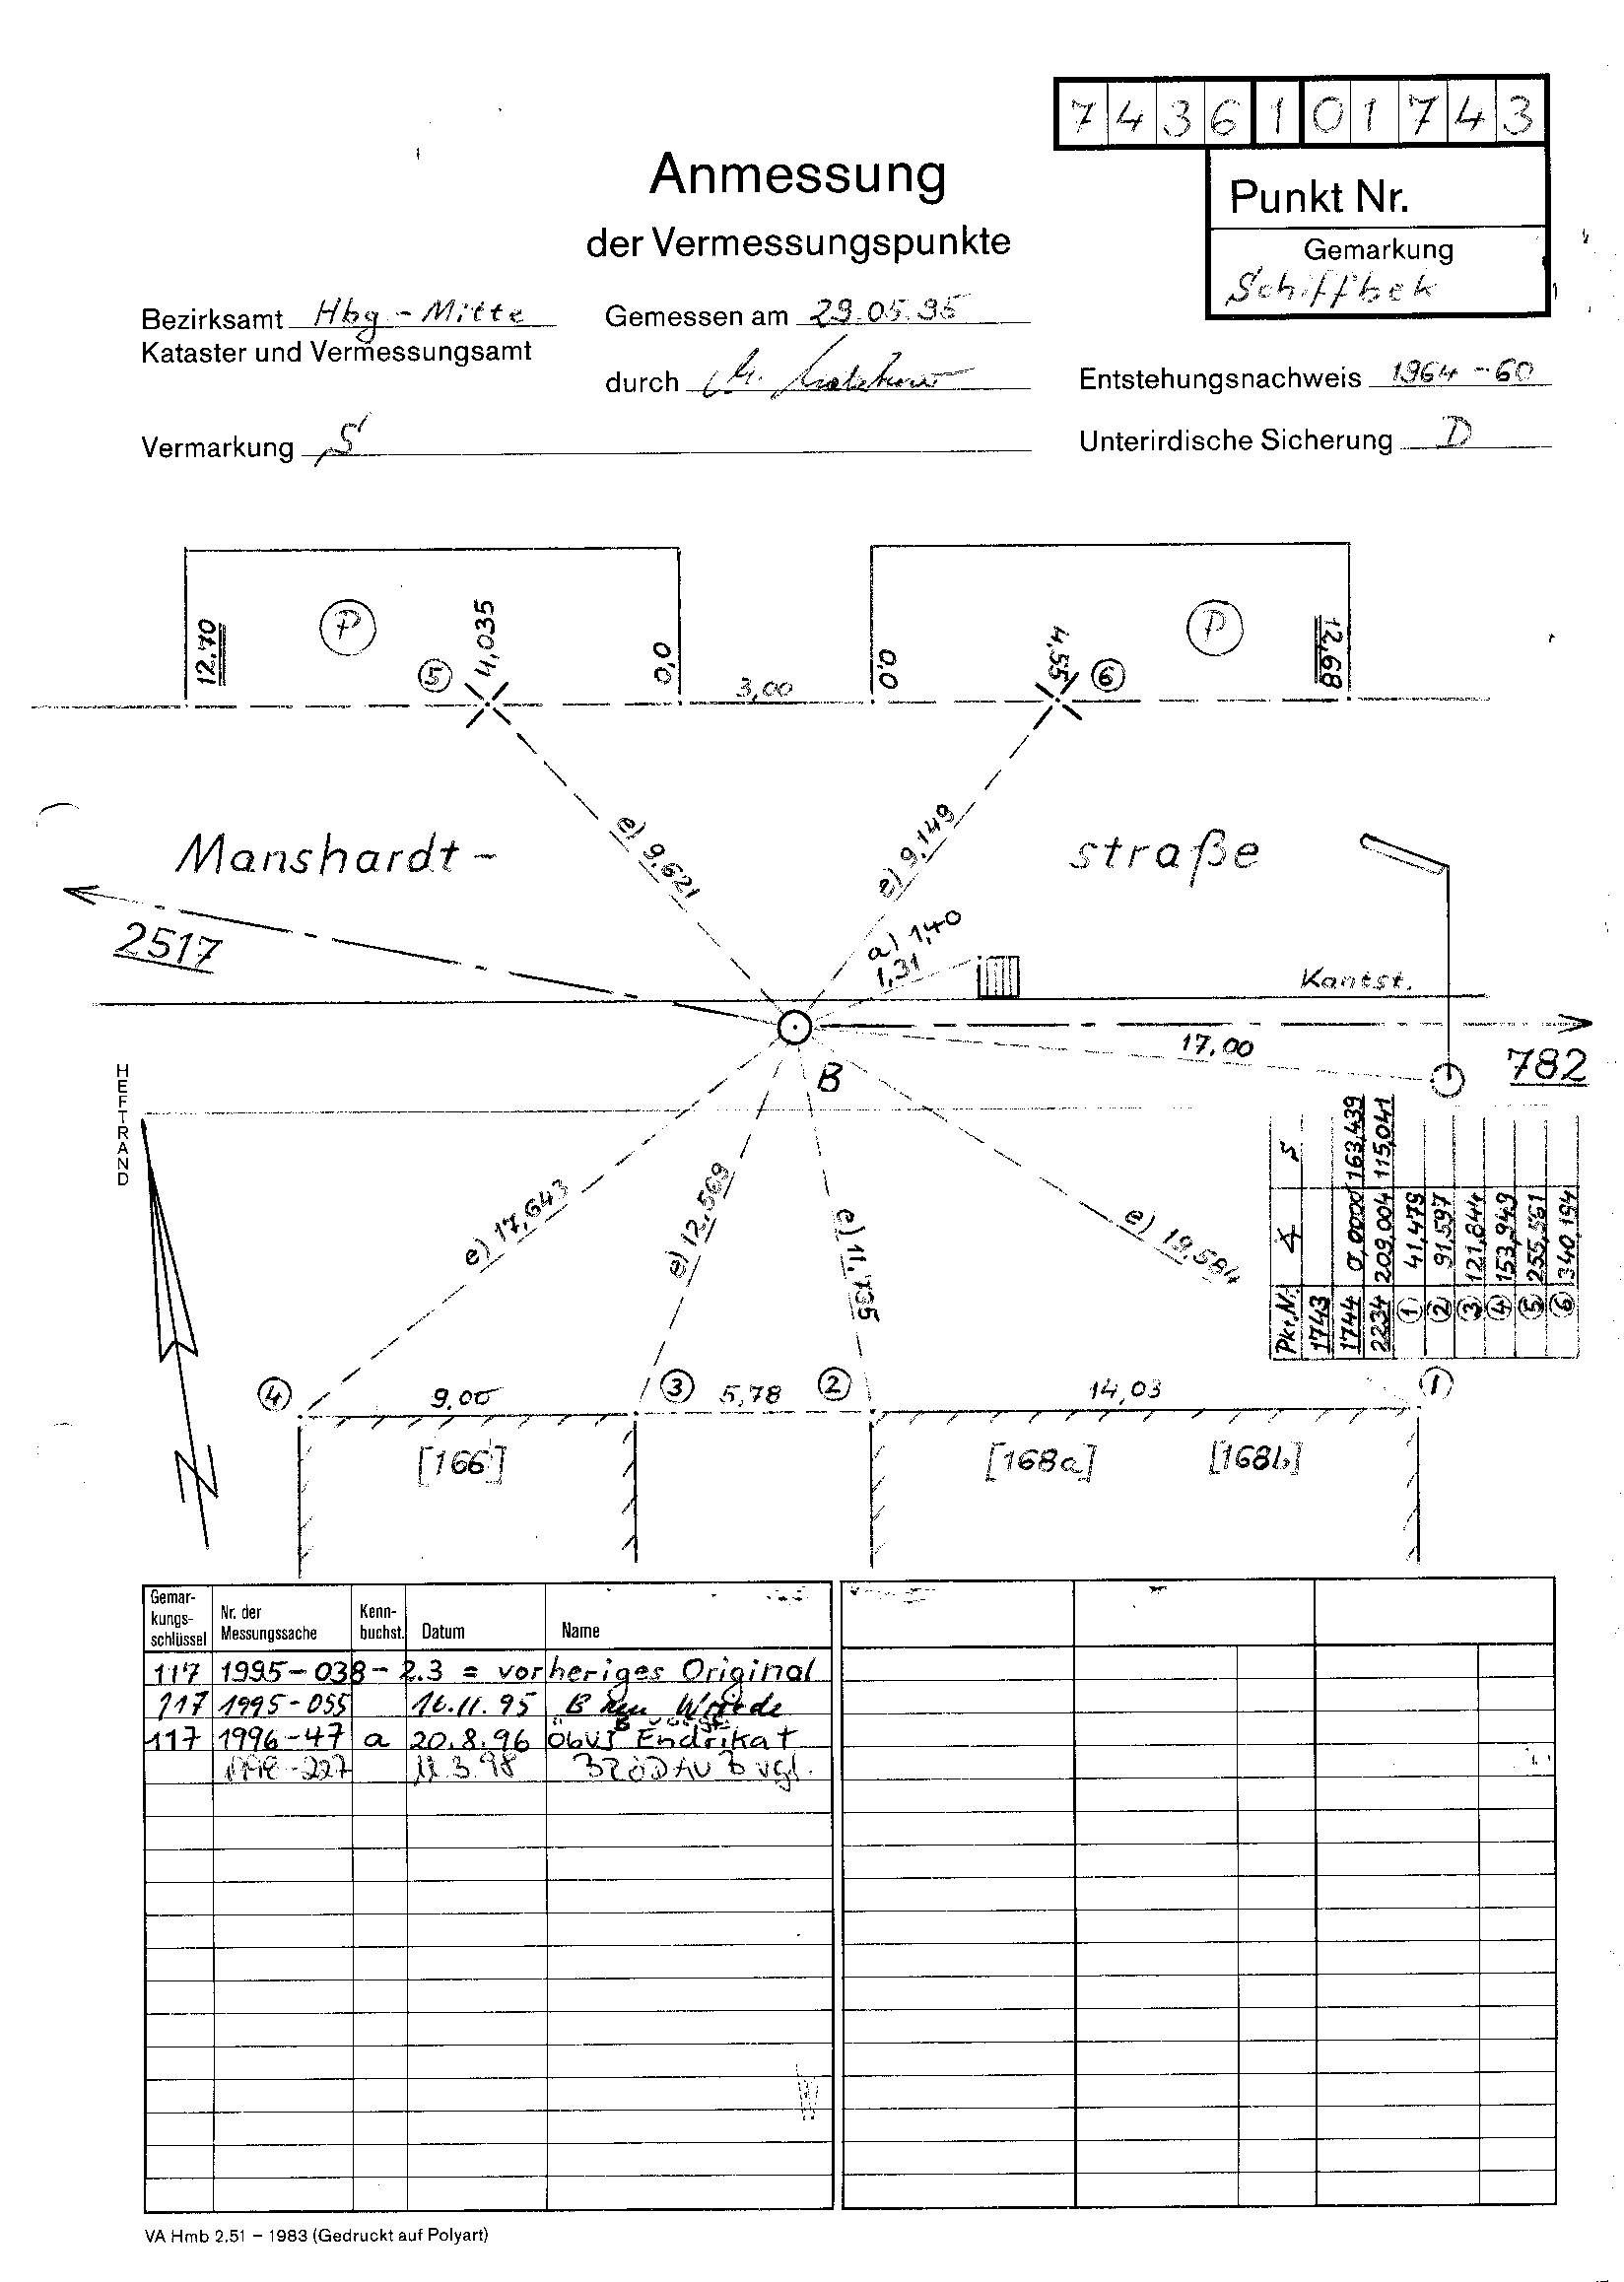 7436101743
Anmessung
der Vermessungspunkte
Punkt Nr.
Gemarkung
Schiffbek
Bezirksamt Hbg-Mitte
Kataster und Vermessungsamt
Gemessen am 29.05.95
durch
Entstehungsnachweis 1964-60
Vermarkung S
Unterirdische Sicherung D
12.70
P
5
4,035
0,0
3,00
0,0
4,55
6
P
12,68
e) 9,621
e) 9,149
Manshardt-
straße
2517
a) 1,40
1,31
Kantst.
17,00
782
B
HEFTRAND
e) 17,643
e) 12,569
e) 11,735
e) 19,584
Pkt.Nr. ∡ S
1743
1744 0,0000 163,439
2234 209,004 115,041
1 41,479
2 91,597
3 121,844
4 153,949
5 255,561
6 340,194
4
9,00
3
5,78
2
14,03
1
[166]
[168a]
[168b]
N
Gemar-
kungs-
schlüssel
Nr. der
Messungssache
Kenn-
buchst.
Datum
Name
117 1995-038-2.3 = vorheriges Original
117 1995-055 16.11.95 B
117 1996-47 a 20.8.96 ÖbVI Endrikat
-227 3.98 vgl.
VA Hmb 2.51 – 1983 (Gedruckt auf Polyart)